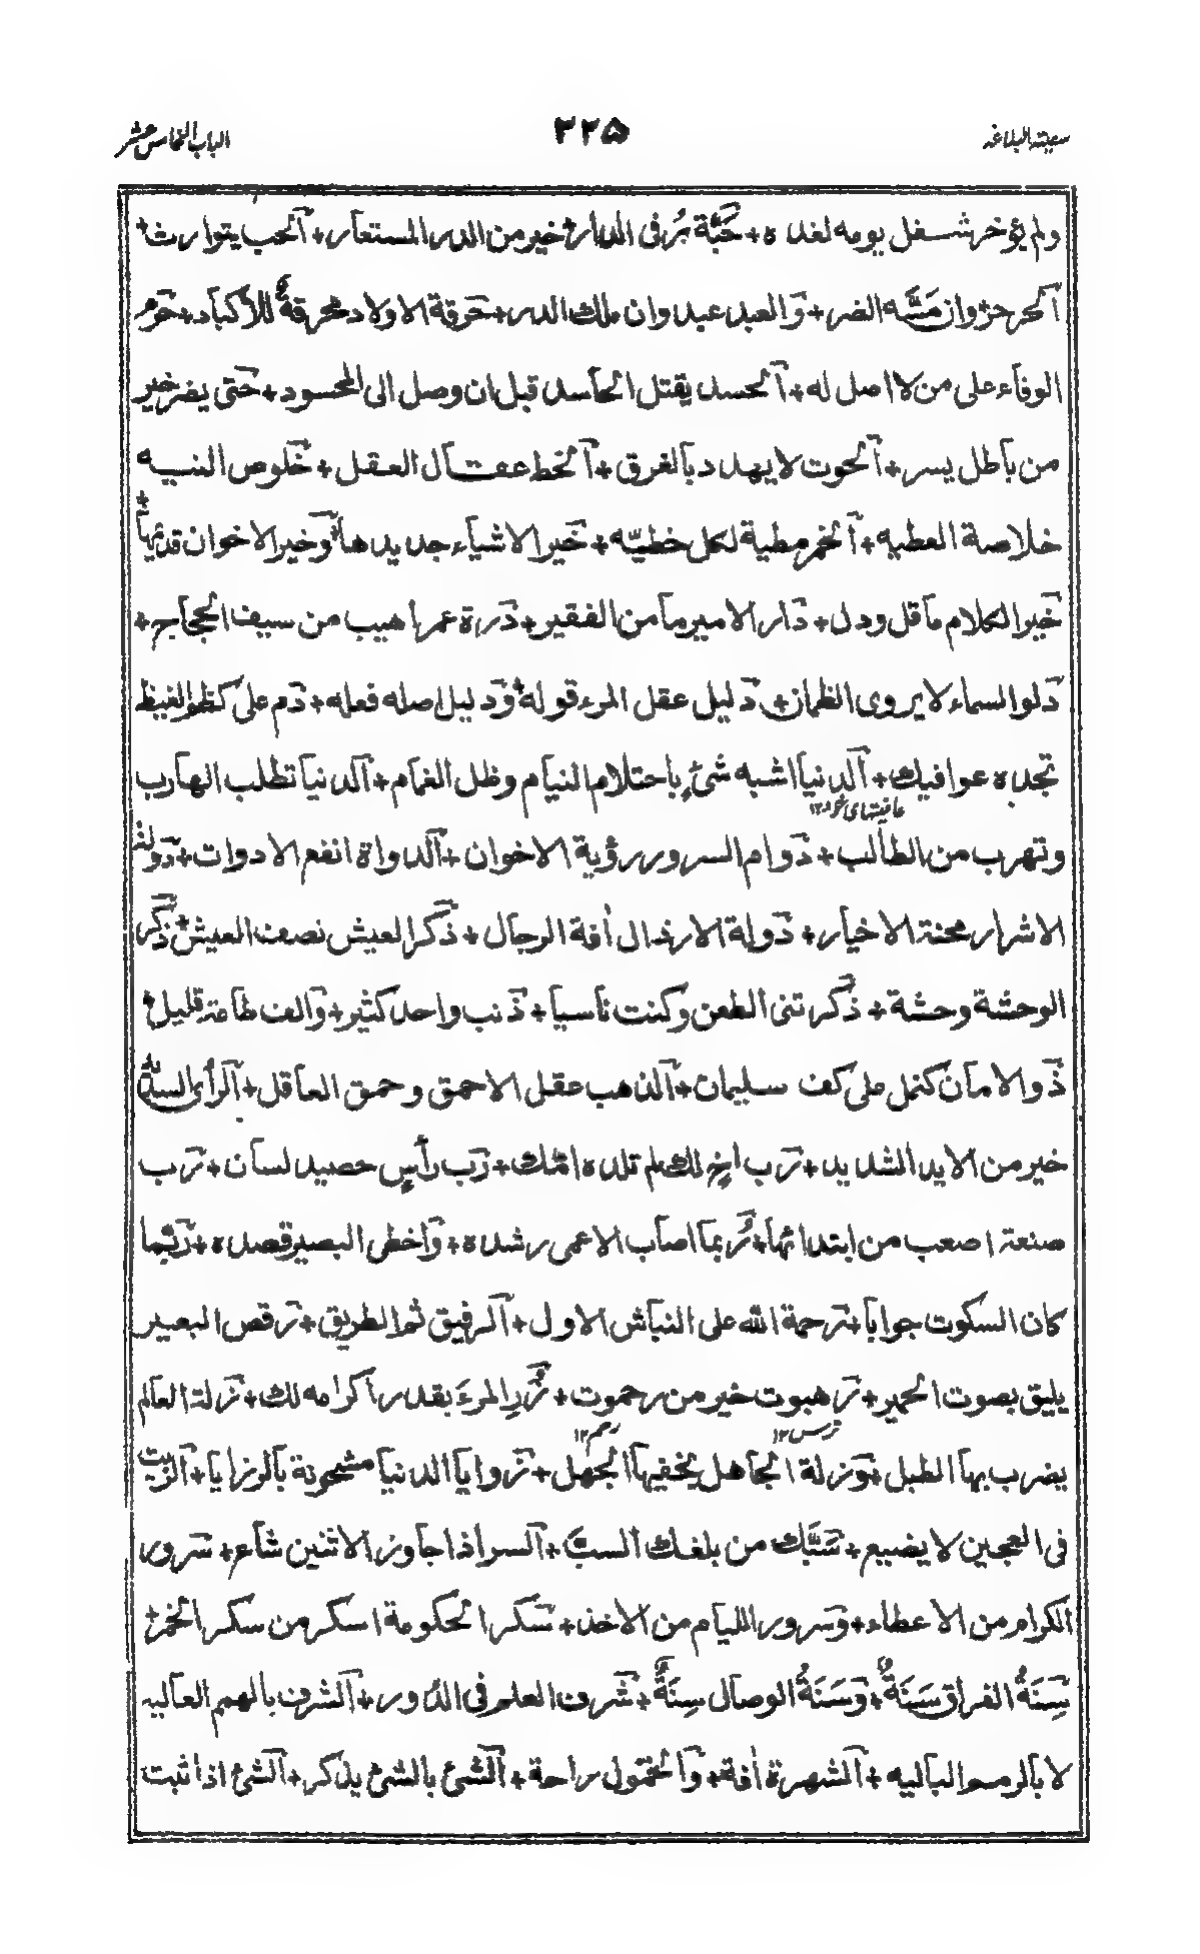 سعبة البلاغه ٣٢٥ الباب الخامس عشر
ولم يؤخر شغل يومه لغده + حبة برفى الدار خير من الدر المستعار + الحب يتوارث +
الحر حر وان مسّه الضر + والعبد عبد وان ملك الدر + حرقة الاولاد محرقة للاكباد + حرم
الوفاء على من لا اصل له + الحسد يقتل الحاسد قبل ان وصل الى المحسود + حتى يضر خير
من باطل يسر + الحوت لا يهدد بالغرق + الخط عقال العقل + خلوص النيه
خلاصة العطيه + الخمر مطية لكل خطيّه + خير الاشياء جديدها + وخير الاخوان قديمها +
خير الكلام ما قل ودل + دار الامير مأمن الفقير + درة عمر اهيب من سيف الحجاج +
دلو السماء لا يروى الظمان + دليل عقل المرء قوله + ودليل اصله فعله + دم على كظم الغيظ
تجده عوافيك + الدنيا اشبه شئ باحتلام النيام وظل الغمام + الدنيا تطلب الهارب
عافيتهاى خود١٢
وتهرب من الطالب + دوام السرور رؤية الاخوان + الدواة انفع الادوات + دولة
الاشرار محنة الاخيار + دولة الارذال أفة الرجال + ذكر العيش نصف العيش + ذكر
الوحشة وحشة + ذكرتنى الطعن وكنت ناسيا + ذنب واحد كثير + والف طاعة قليل +
ذو الامان كنمل على كف سليمان + الذهب عقل الاحمق وحمق العاقل + الرأى السديد
خير من الايد الشديد + رب اخ لك لم تلده امك + رب رأس حصيد لسان + رب
صنعة اصعب من ابتدائها + ربما اصاب الاعمى رشده + واخطى البصير قصده + ربّما
كان السكوت جوابا + رحمة الله على النباش الاول + الرفيق ثم الطريق + رقص البعير
يليق بصوت الحمير + رهبوت خير من رحموت + زر المرء بقدر اكرامه لك + زلة العالم
ترس١٢ رحم١٢
يضرب بها الطبل + وزلة الجاهل يخفيها الجهل + زوايا الدنيا مشحونة بالرزايا + الزيت
فى العجين لا يضيع + سبّك من بلغك السب + السر اذا جاوز الاثنين شاع + سرور
الكرام من الاعطاء + وسرور الليام من الاخذ + سكر الحكومة اسكر من سكر الخمر +
سِنَةُ الفراق سَنَةٌ + وَسَنَةُ الوصال سِنَةٌ + شرف العلم فى الدور + الشرف بالهمم العاليه
لا بالرمم الباليه + الشهرة أفة + والخمول راحة + الشئ بالشئ يذكر + الشئ اذا ثبت